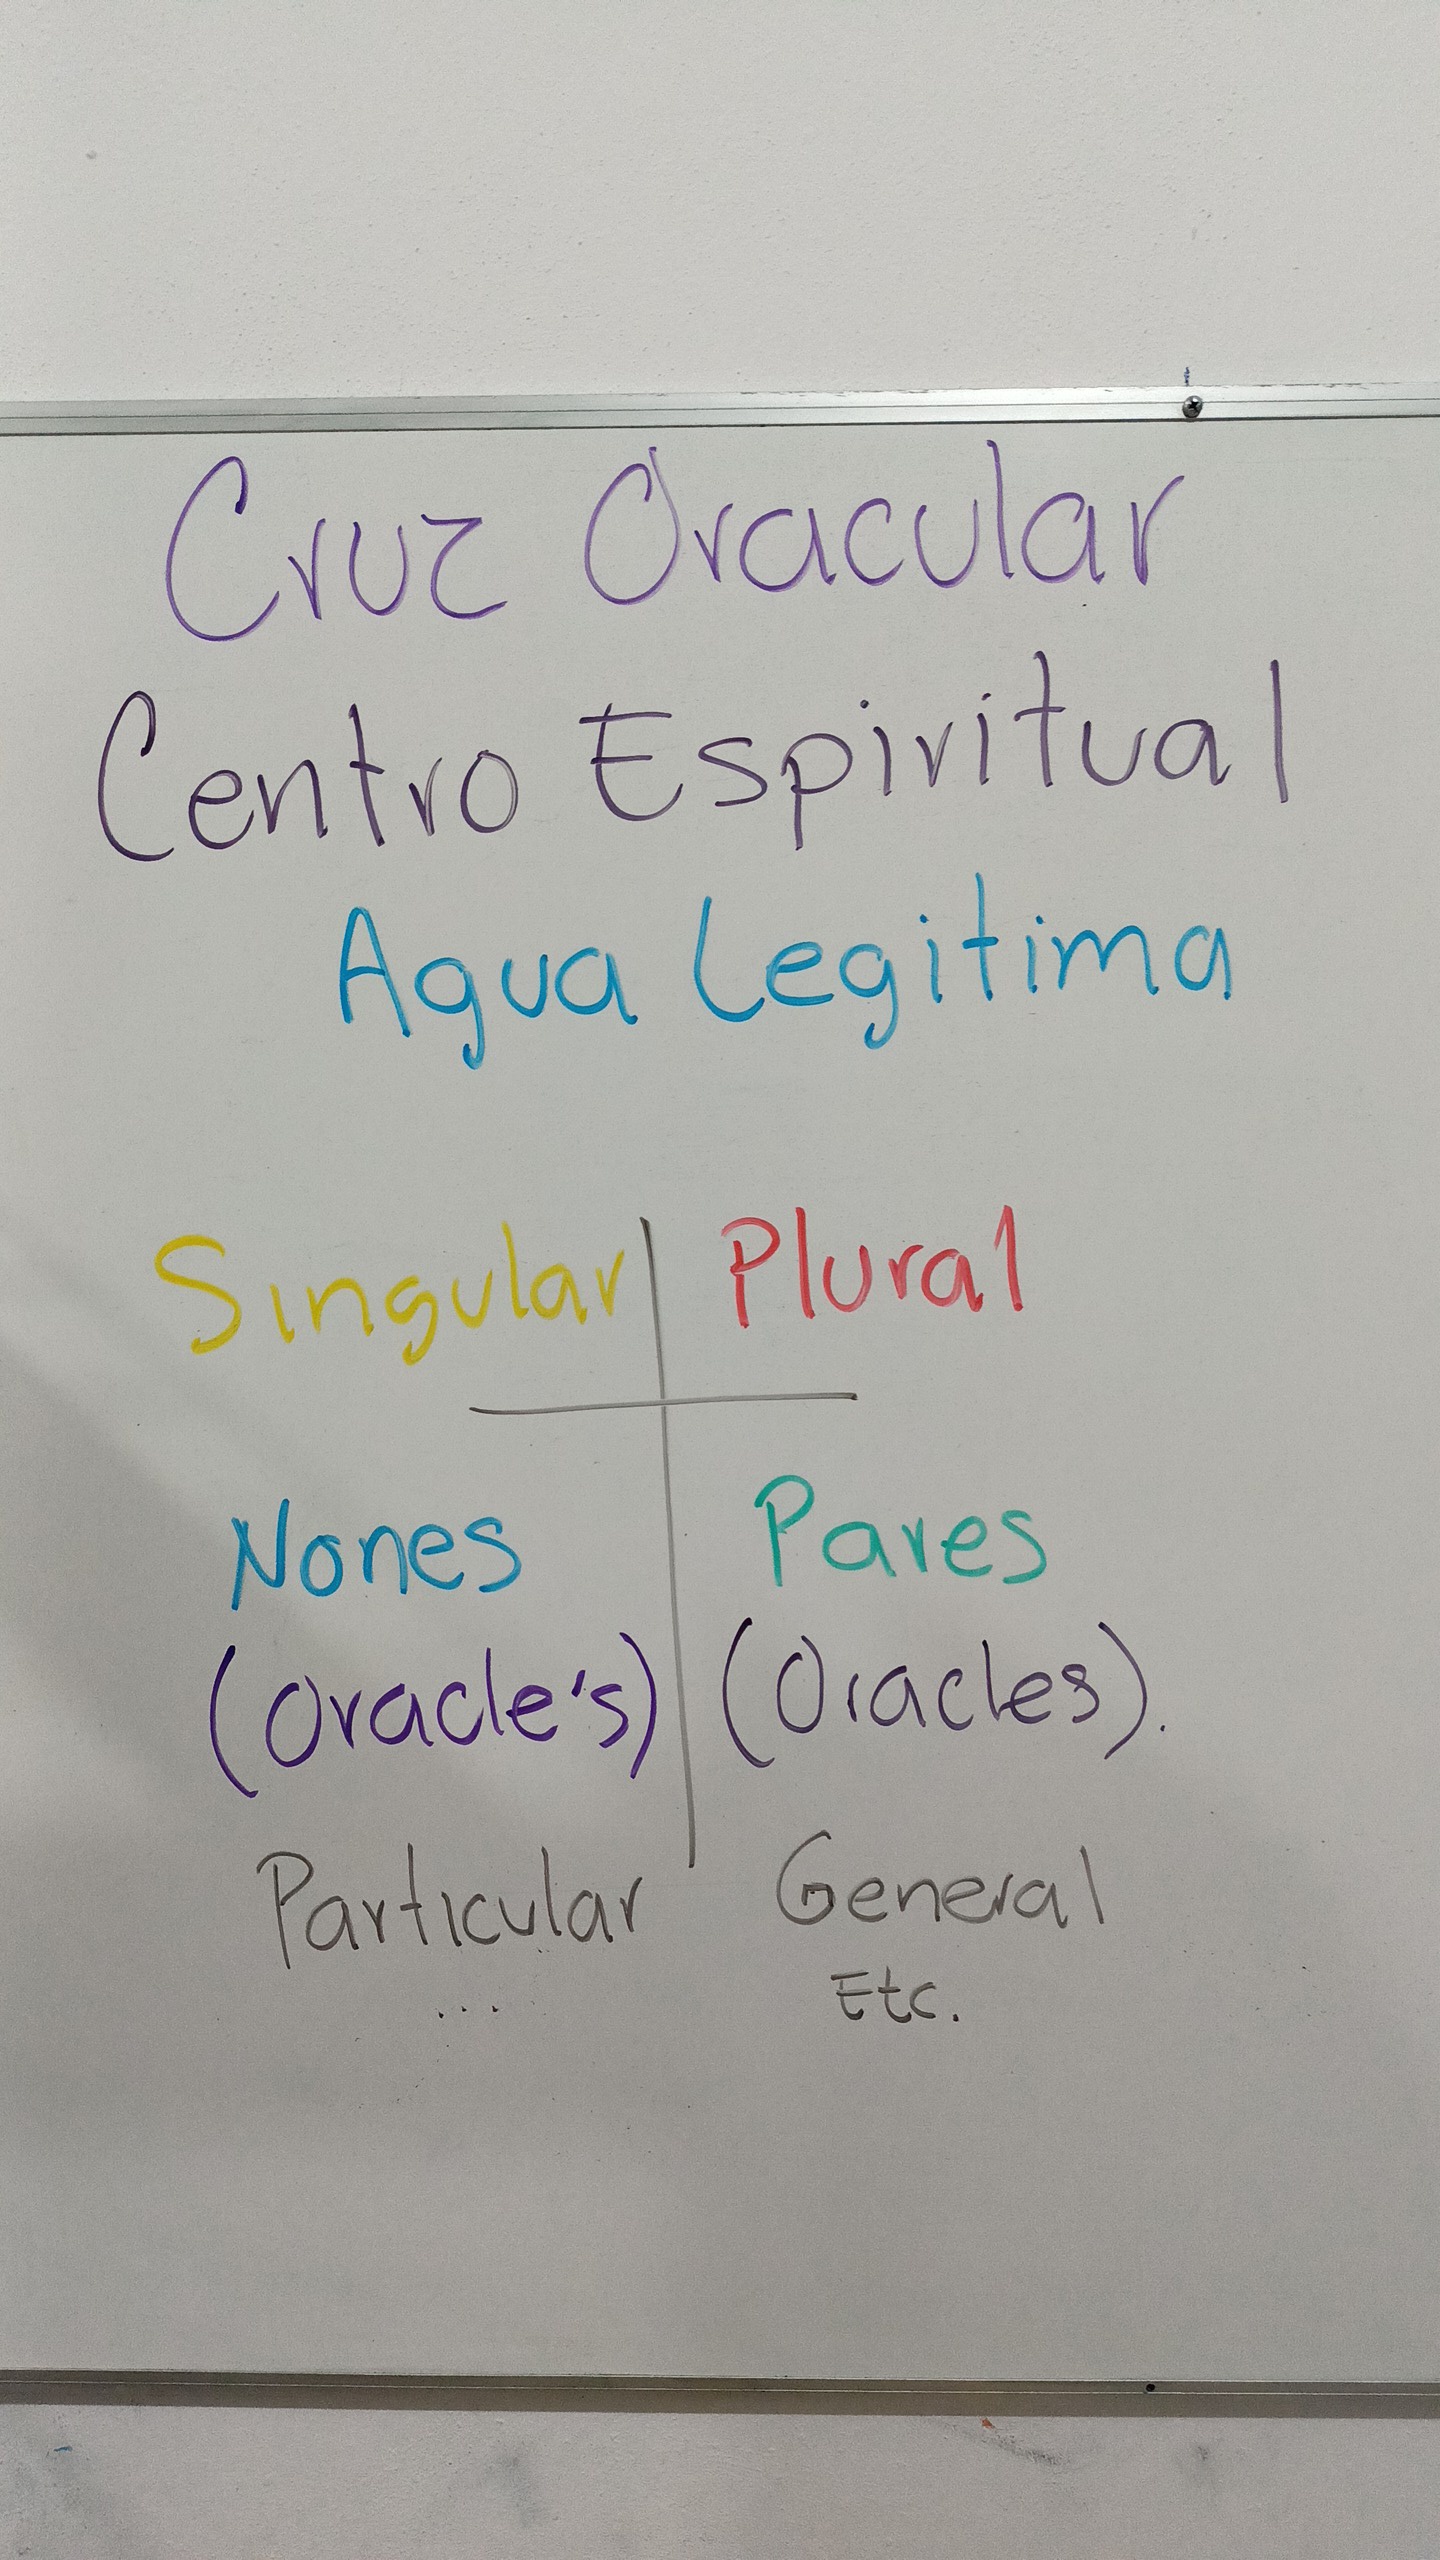 Cruz Oracular
Centro Espiritual
Agua Legitima
Singular Plural
Nones Pares
(Oracle's) (Oracles).
Particular General
... Etc.